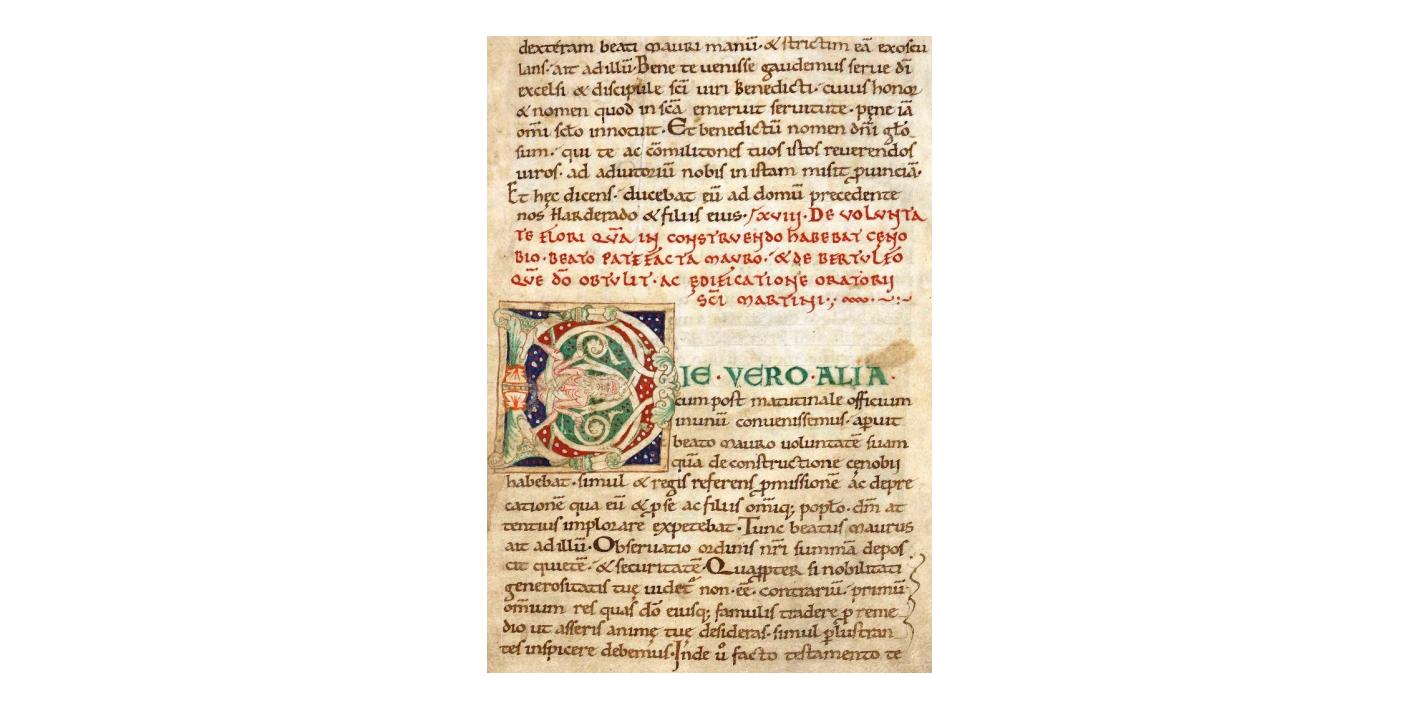 dexteram beati mauri manū· & strictim eā exoscu
lans· ait ad illū· Bene te uenisse gaudemus serue dī
excelsi & discipule scī uiri Benedicti· cuius honor
& nomen quod in scā emeruit seruitute· pęne iā
om̄i sc̄lo innotuit· Et benedictū nomen dn̄i glo
sum· qui te ac cōmilitones tuos istos reuerendos
uiros· ad adiutoriū nobis in istam misit ꝓuinciā·
Et hęc dicens· ducebat eū ad domū precedente
nos Harderado & filiis eius· XVIII· DE VOLVNTA
TE FLORI QVĀ IN CONSTRVENDO HABEBAT CENO
BIO· BEATO PATEFACTA MAVRO· & DE BERTVLFO
QVĒ DŌ OBTVLIT· AC EDIFICATIONE ORATORII
SCĪ MARTINI·
DIE· VERO· ALIA·
cum post matutinale officium
in unū conuenissemus· apuit
beato mauro uoluntatē suam
quā de constructione cenobii
habebat· simul & regis referens ꝓmissionē ac depre
cationē qua eū & p se ac filiis omiq; poplo· dm̄ at
tentius implorare expetebat· Tunc beatus maurus
ait ad illū· Obseruatio ordinis nr̄i summā depos
cit quietē· & securitatē· Quaꝓpter si nobilitati
generositatis tuę uidetᵘ non· eē· contrariū· primū
om̄ium res quas dō eiusq; famulis tradere p reme
dio ut asseris animę tuę desideras· simul plustran
tes inspicere debemus· Inde ů facto testamento te